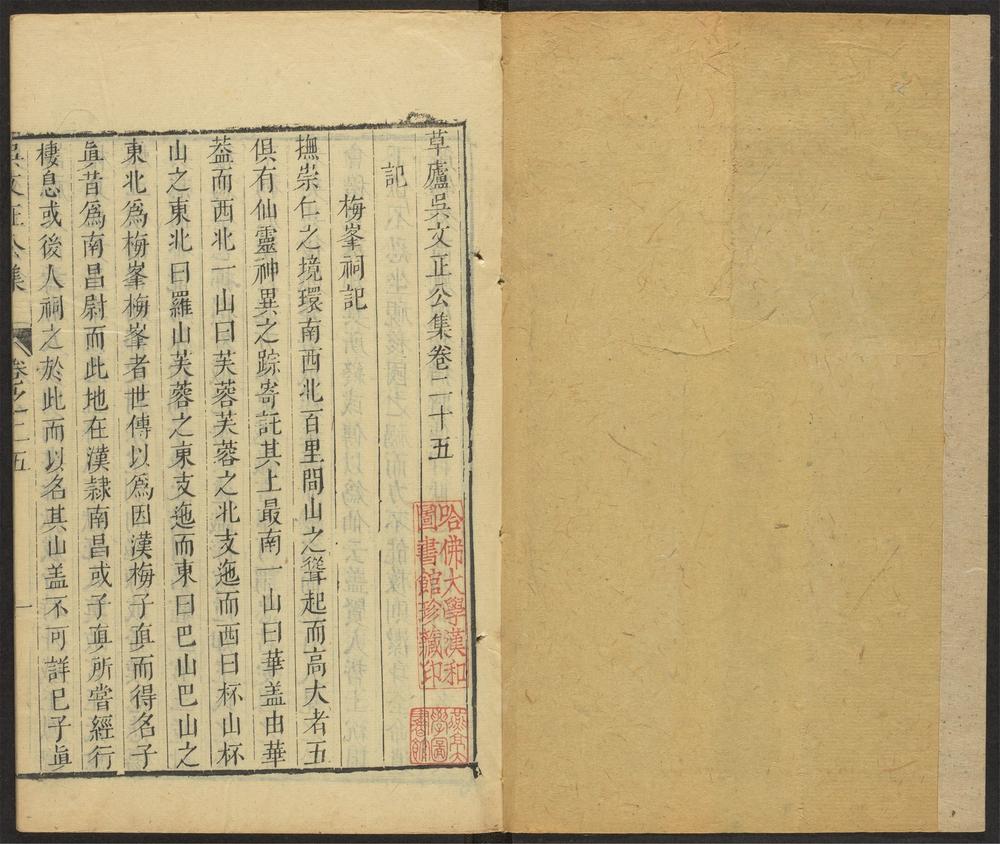 草廬吳文正公集卷二十五
記
梅峯祠記
撫崇仁之境環南西北百里間山之聳起而高大者五
俱有仙靈神異之踪寄託其上最南一山曰華盖由華
葢而西北一山曰芙蓉芙蓉之北支迤而西曰杯山杯
山之東北曰羅山芙蓉之東支迤而東曰巴山巴山之
東北爲梅峯梅峯者世傳以爲因漢梅子眞而得名子
眞昔爲南昌尉而此地在漢隷南昌或子眞所嘗經行
棲息或後人祠之於此而以名其山盖不可詳已子眞
吳文正公集
卷之二五
一
哈佛大學漢和
圖書館珍藏印
燕京大
學圖
書館